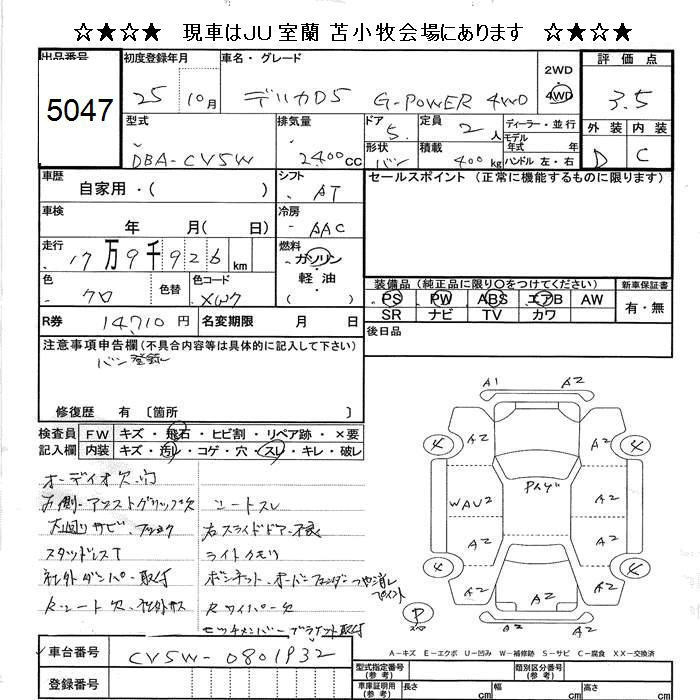 ☆★☆★ 現車はJU室蘭 苫小牧会場にあります ☆★☆★
出品番号 初度登録年月 車名・グレード 2WD 評価点
5047 25 10月 デリカD5 G-POWER 4WD 4WD 3.5
型式 排気量 ドア 定員 ディーラー・並行 外装 内装
DBA-CV5W 2400cc 5 2人 モデル年式 年 D C
形状 積載 ハンドル 左・右
バン 400kg
車歴 シフト セールスポイント (正常に機能するものに限ります)
自家用・( ) AT
車検 冷房
年 月( 日) AAC
走行 燃料
17万9千926km ガソリン・軽油
( )
色 色替 色コード 装備品 (純正品に限り○をつけてください) 新車保証書
クロ X42 PS PW ABS エアB AW 有・無
R券 14,710円 名変期限 月 日 SR ナビ TV カワ
後日品
注意事項申告欄(不具合内容等は具体的に記入して下さい)
バン登録
修復歴 有 〔箇所 〕
検査員 FW キズ・飛石・ヒビ割・リペア跡・×要
記入欄 内装 キズ・汚れ・コゲ・穴・スレ・キレ・破レ
オーディオ欠、穴
右側アシストグリップ欠 シートスレ
下廻りサビ 右スライドドア不良
スタッドレスT ライトクモリ
社外ダンパー取付 ボンネット、オーバーフェンダーつや消しペイント
Rシート欠 Rワイパー欠
ブラケット取付
A1 A2
4 A2 A2 4
A2
WAU2 A2
A2 A2
4 A2 A2 4
A2 A2
P
A-キズ E-エクボ U-凹み W-補修跡 S-サビ C-腐食 XX-交換済
車台番号 CV5W-0801932
登録番号
型式指定番号(参考) 類別区分番号(参考)
車庫証明用(参考) 長さ cm 幅 cm 高さ cm